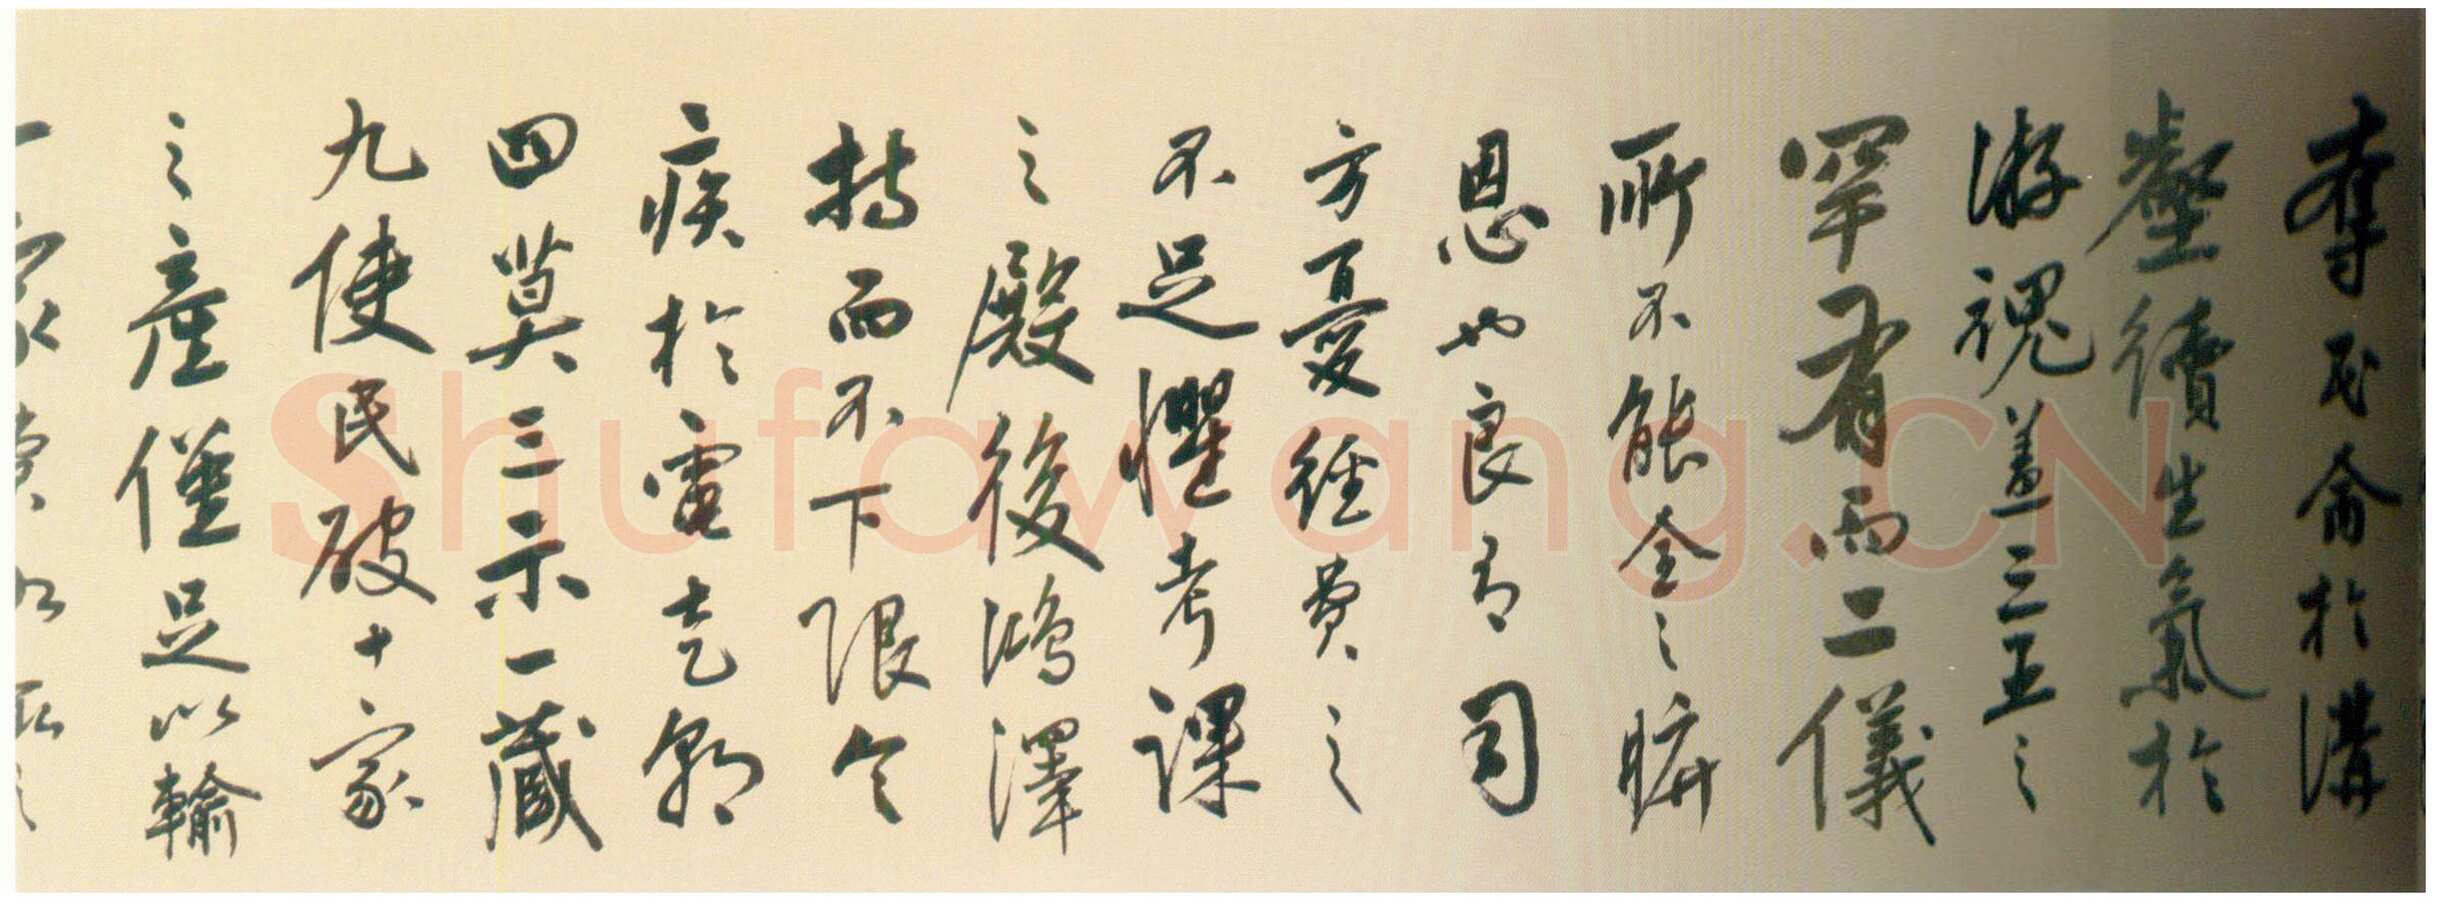 奪民命於溝
壑續生氣於
游魂蓋三王之
罕有而二儀
所不能全之
恩也良有司
方憂經費之
不足懼考課
之殿後鴻澤
持而不下限令
疾於電朝
四莫三示一藏
九使民破十家
之產僅足以輸
一家費
Shufawang.CN